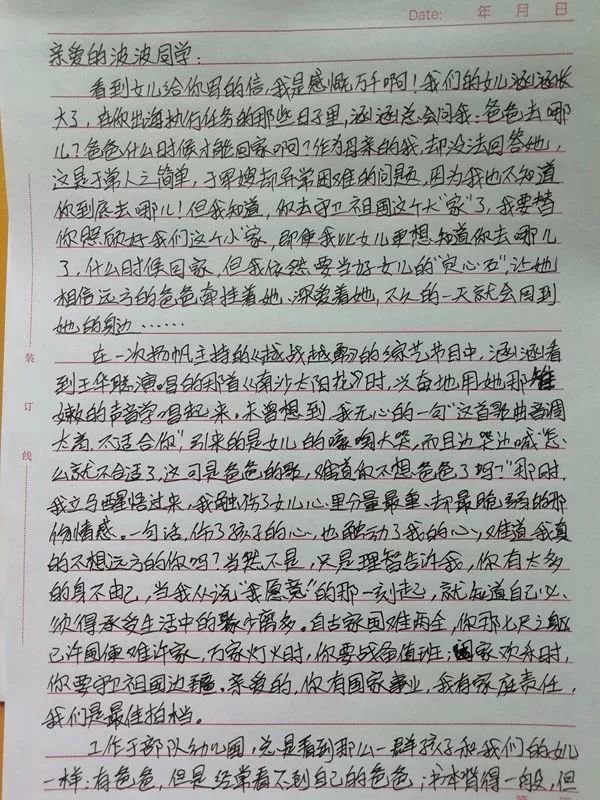 Date: 年 月 日
亲爱的波波同学：
看到女儿给你写的信，我是感慨万千啊！我们的女儿涵涵长
大了，在你出海执行任务的那些日子里，涵涵总会问我：爸爸去哪
儿？爸爸什么时候才能回家啊？作为母亲的我，却没法回答她，
这是于常人之简单，于军嫂却异常困难的问题，因为我也不知道
你到底去哪儿！但我知道，你去守卫祖国这个大“家”了，我要替
你照顾好我们这个小“家”，即使我比女儿更想知道你去哪儿
了，什么时候回家，但我依然要当好女儿的“定心石”，让她
相信远方的爸爸牵挂着她、深爱着她，不久的一天就会回到
她的身边……
在一次扬帆主持的《越战越勇》的综艺节目中，涵涵看
到王华聪演唱的那首《南沙太阳花》时，兴奋地用她那稚
嫩的声音学唱起来。未曾想到，我无心的一句“这首歌曲音调
太高，不适合你”，引来的是女儿的嚎啕大哭，而且边哭边喊“怎
么就不合适了，这可是爸爸的歌，难道你不想爸爸了吗？”那时，
我立马醒悟过来，我触伤了女儿心里分量最重、却最脆弱的那
份情感。一句话，伤了孩子的心，也触动了我的心，难道我真
的不想远方的你吗？当然不是，只是理智告诉我，你有太多
的身不由己，当我从说“我愿意”的那一刻起，就知道自己必
须得承受生活中的聚少离多。自古家国难两全，你那七尺之躯
已许国便难许家，万家灯火时，你要战备值班；国家欢乐时，
你要守卫祖国边疆。亲爱的，你有国家事业，我有家庭责任，
我们是最佳拍档。
工作于部队幼儿园，总是看到那么一群孩子和我们的女儿
一样：有爸爸，但是经常看不到自己的爸爸；书本背得一般，但
装
订
线